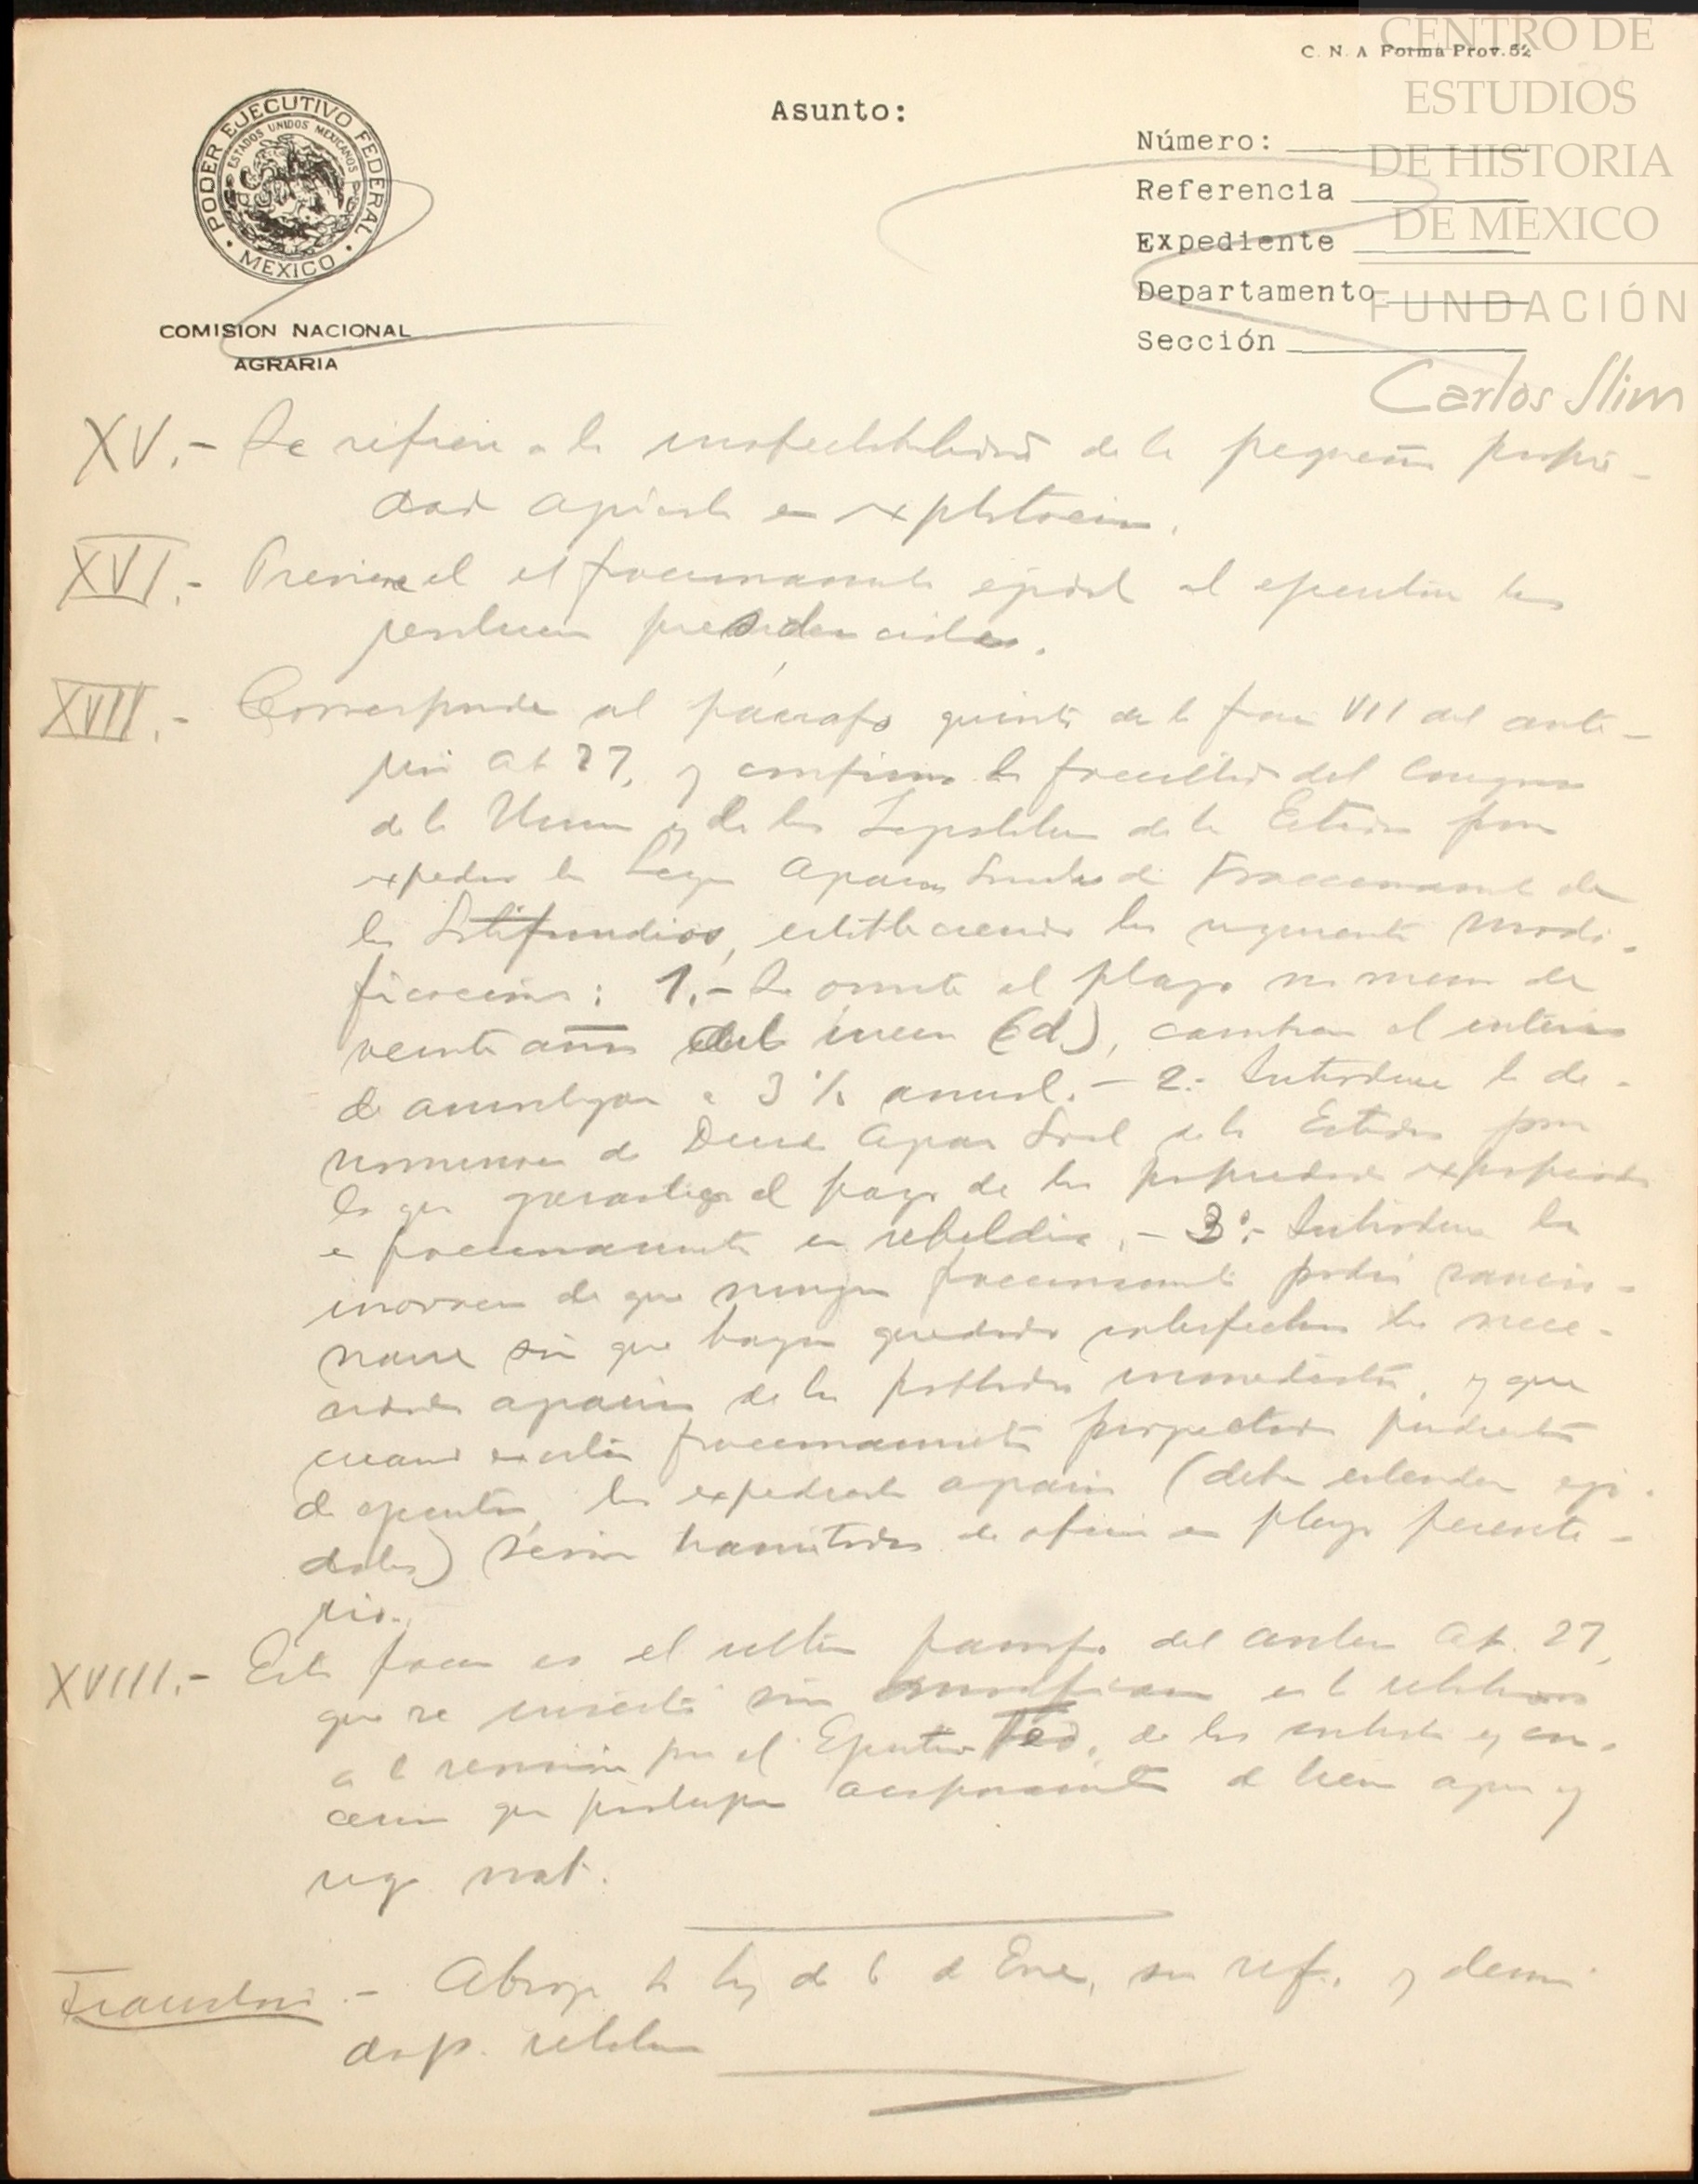 CENTRO DE
ESTUDIOS
DE HISTORIA
DE MEXICO
FUNDACIÓN
Carlos Slim
C. N. A Forma Prov. 52
PODER EJECUTIVO FEDERAL
ESTADOS UNIDOS MEXICANOS
MEXICO
COMISION NACIONAL
AGRARIA
Asunto:
Número:
Referencia
Expediente
Departamento
Sección
XV.- Se refiere a la inafectabilidad de la pequeña propie-
dad agrícola en explotación.
XVI.- Previene el fraccionamiento ejidal al ejecutar las
presidenciales.
XVII.- Corresponde al párrafo quinto de la frac VII del ante-
rior Art 27, y confirma la facultad del Congreso
de la Unión y de las Legislaturas de los Estados para
expedir las Leyes Agrarias de Fraccionamiento de
los Latifundios, estableciendo las siguientes modi-
ficaciones: 1.- Se omite el plazo no menor de
veinte años del inciso (d), cambian el interés
de a 3% anual. - 2.- Introduce la de-
nominación de Deuda Agraria de los Estados para
lo que garantiza el pago de las propiedades expropiadas
e fraccionamiento en rebeldía. - 3º.- Introduce la
de que ningún fraccionamiento podrá sancio-
narse sin que hayan quedado satisfechas las nece-
sidades agrarias de los poblados inmediatos, y que
cuando existan fraccionamientos proyectados pendientes
de ejecutar, los expedientes agrarios (debe entenderse eji-
dales) serán tramitados de oficio en plazo perento-
rio.
XVIII.- Esta fracc es el último párrafo del anterior Art. 27,
que se inserta sin modificación en lo relativo
a la revisión por el Ejecutivo Fed. de los contratos y con-
cesiones que acaparamiento de tierras aguas y
riqz nat.
Transitorio.- Abroga la ley de 6 de Ene, sus ref. y demás
disp. relativas